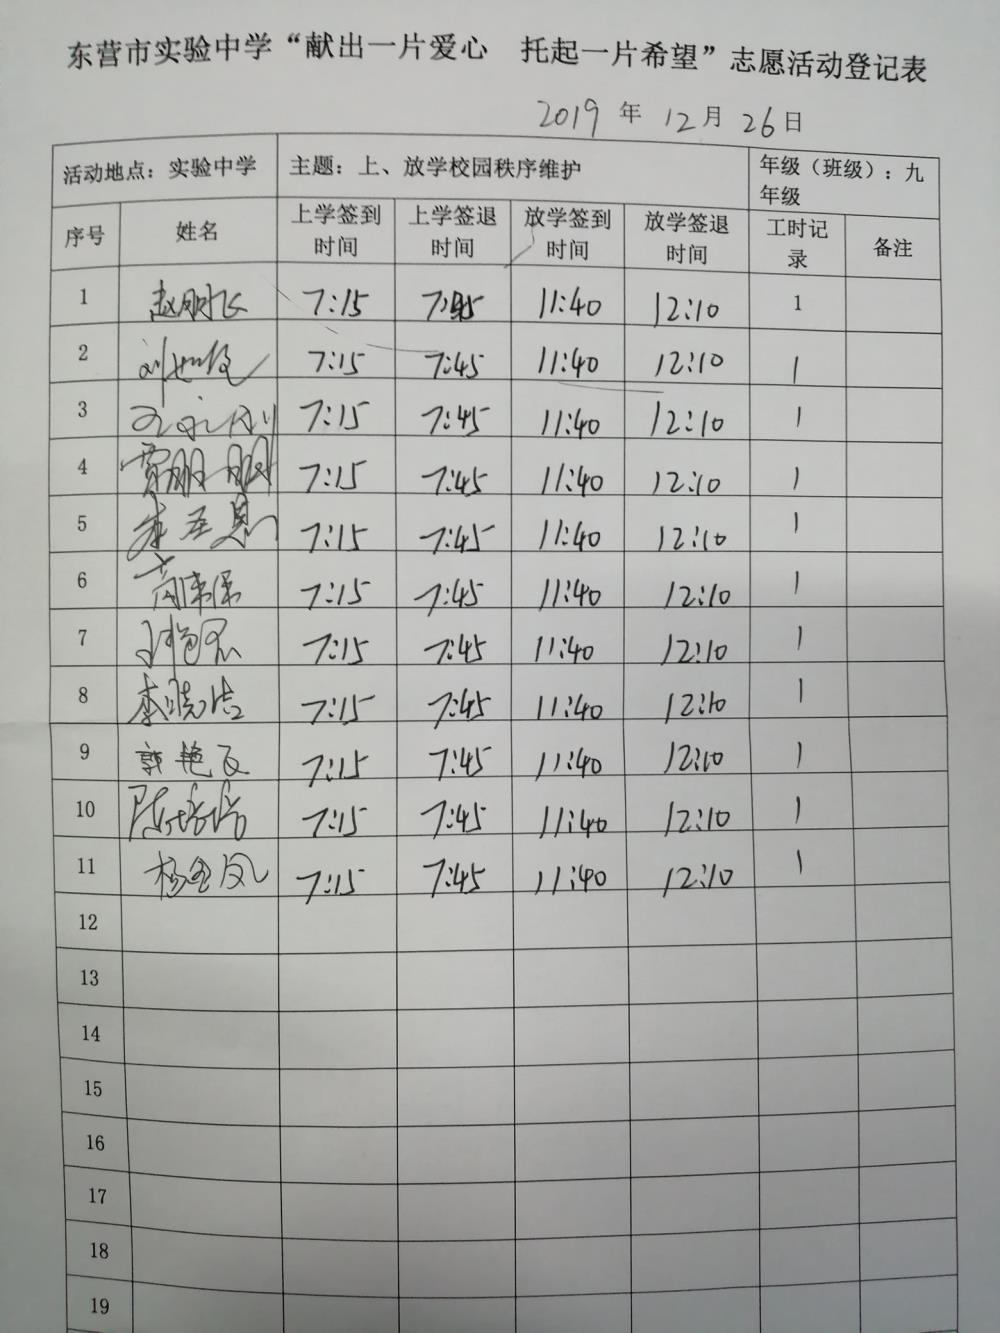 东营市实验中学“献出一片爱心 托起一片希望”志愿活动登记表
2019年12月26日
活动地点：实验中学 主题：上、放学校园秩序维护 年级（班级）：九年级
序号 姓名 上学签到时间 上学签退时间 放学签到时间 放学签退时间 工时记录 备注
1 赵朋飞 7:15 7:45 11:40 12:10 1
2 7:15 7:45 11:40 12:10 1
3 7:15 7:45 11:40 12:10 1
4 贾朋朋 7:15 7:45 11:40 12:10 1
5 7:15 7:45 11:40 12:10 1
6 7:15 7:45 11:40 12:10 1
7 7:15 7:45 11:40 12:10 1
8 李晓洁 7:15 7:45 11:40 12:10 1
9 郭艳飞 7:15 7:45 11:40 12:10 1
10 陈培培 7:15 7:45 11:40 12:10 1
11 杨金凤 7:15 7:45 11:40 12:10 1
12
13
14
15
16
17
18
19